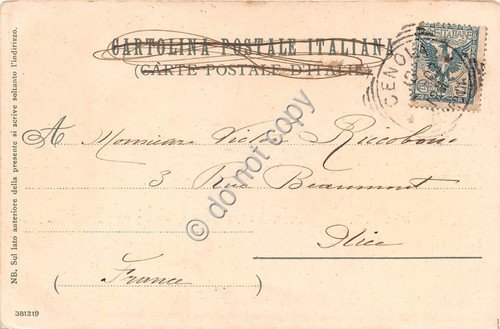 CARTOLINA POSTALE ITALIANA
(CARTE POSTALE D'ITALIE)
GENOVA
A Monsieur Victor Riccobono
3 Rue Beaumont
Nice
(France)
NB. Sul lato anteriore della presente si scrive soltanto l'indirizzo.
381219
© do not copy